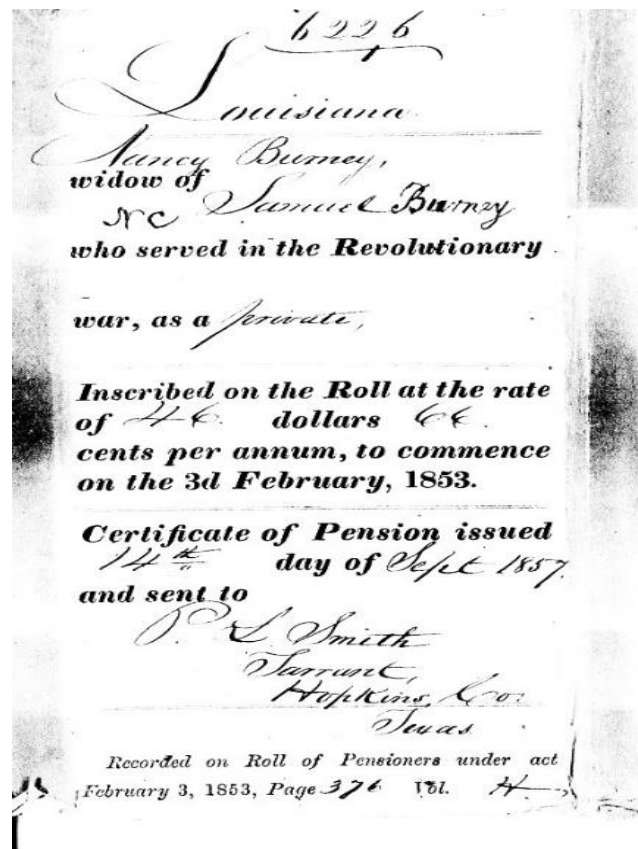 6226
Louisiana
Nancy Burney,
widow of
Samuel Burney
NC
who served in the Revolutionary
war, as a private,
Inscribed on the Roll at the rate
of 46 dollars 66
cents per annum, to commence
on the 3d February, 1853.
Certificate of Pension issued
14th day of Sept 1857
and sent to
P. L. Smith
Tarrant,
Hopkins, Co.
Texas
Recorded on Roll of Pensioners under act
February 3, 1853, Page 376 Vol. H